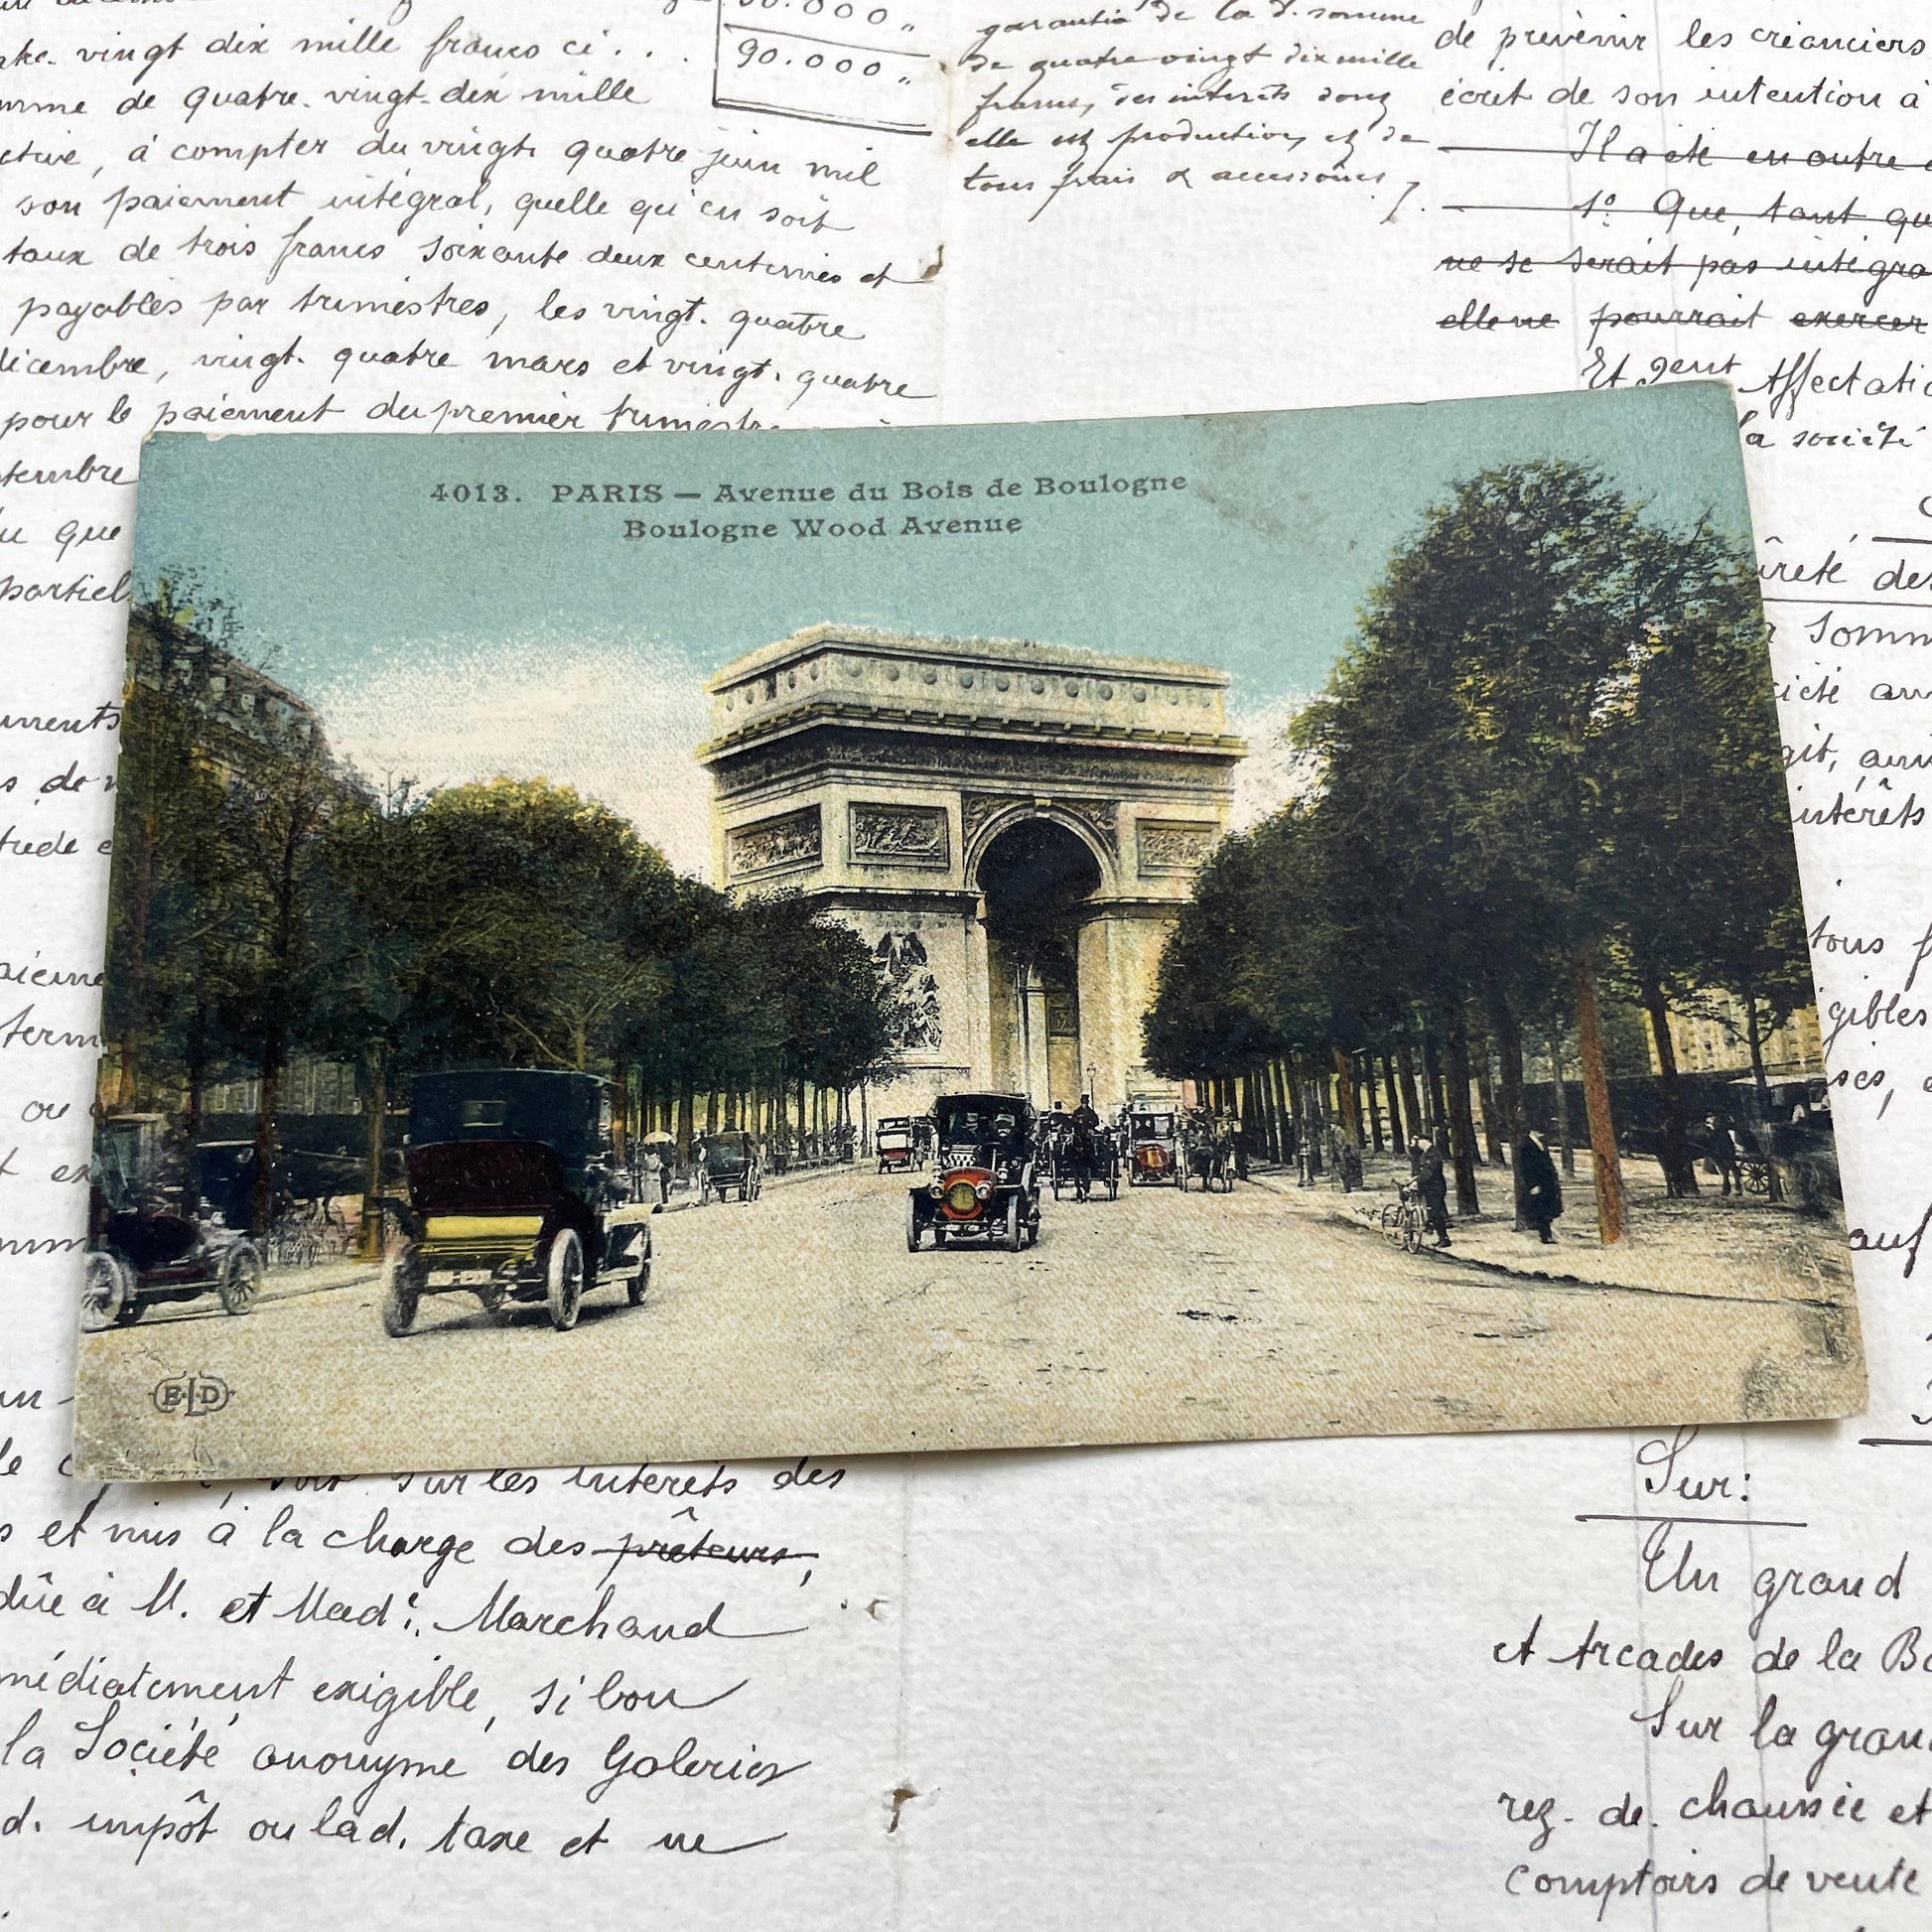 vingt dix mille francs ci . .
90.000 "
de quatre-vingt-dix mille
à compter du vingt quatre juin mil
son paiement intégral, quelle qu'en soit
taux de trois francs soixante deux centimes et
payables par trimestres, les vingt. quatre
vingt. quatre mars et vingt. quatre
pour le paiement du premier trimestre
que
garantie de la d. somme
de quatre vingt dix mille
francs, des intérêts dont
elle est production, et de
tous frais & accessoires
de prévenir les créanciers
écrit de son intention à
Il a été en outre
1º Que, tant
ne se serait pas
elle ne pourrait exercer
Et
la société
4013. PARIS — Avenue du Bois de Boulogne
Boulogne Wood Avenue
ELD
de
tous
intérêts
sur les intérêts des
et mis à la charge des prêteurs,
dûe à M. et Mad. Marchand
exigible, si bon
la Société anonyme des Galeries
d. impôt ou lad. taxe et ne
Sur:
Un grand
et Arcades de la
Sur la
rez. de. chaussée et
comptoirs de vente